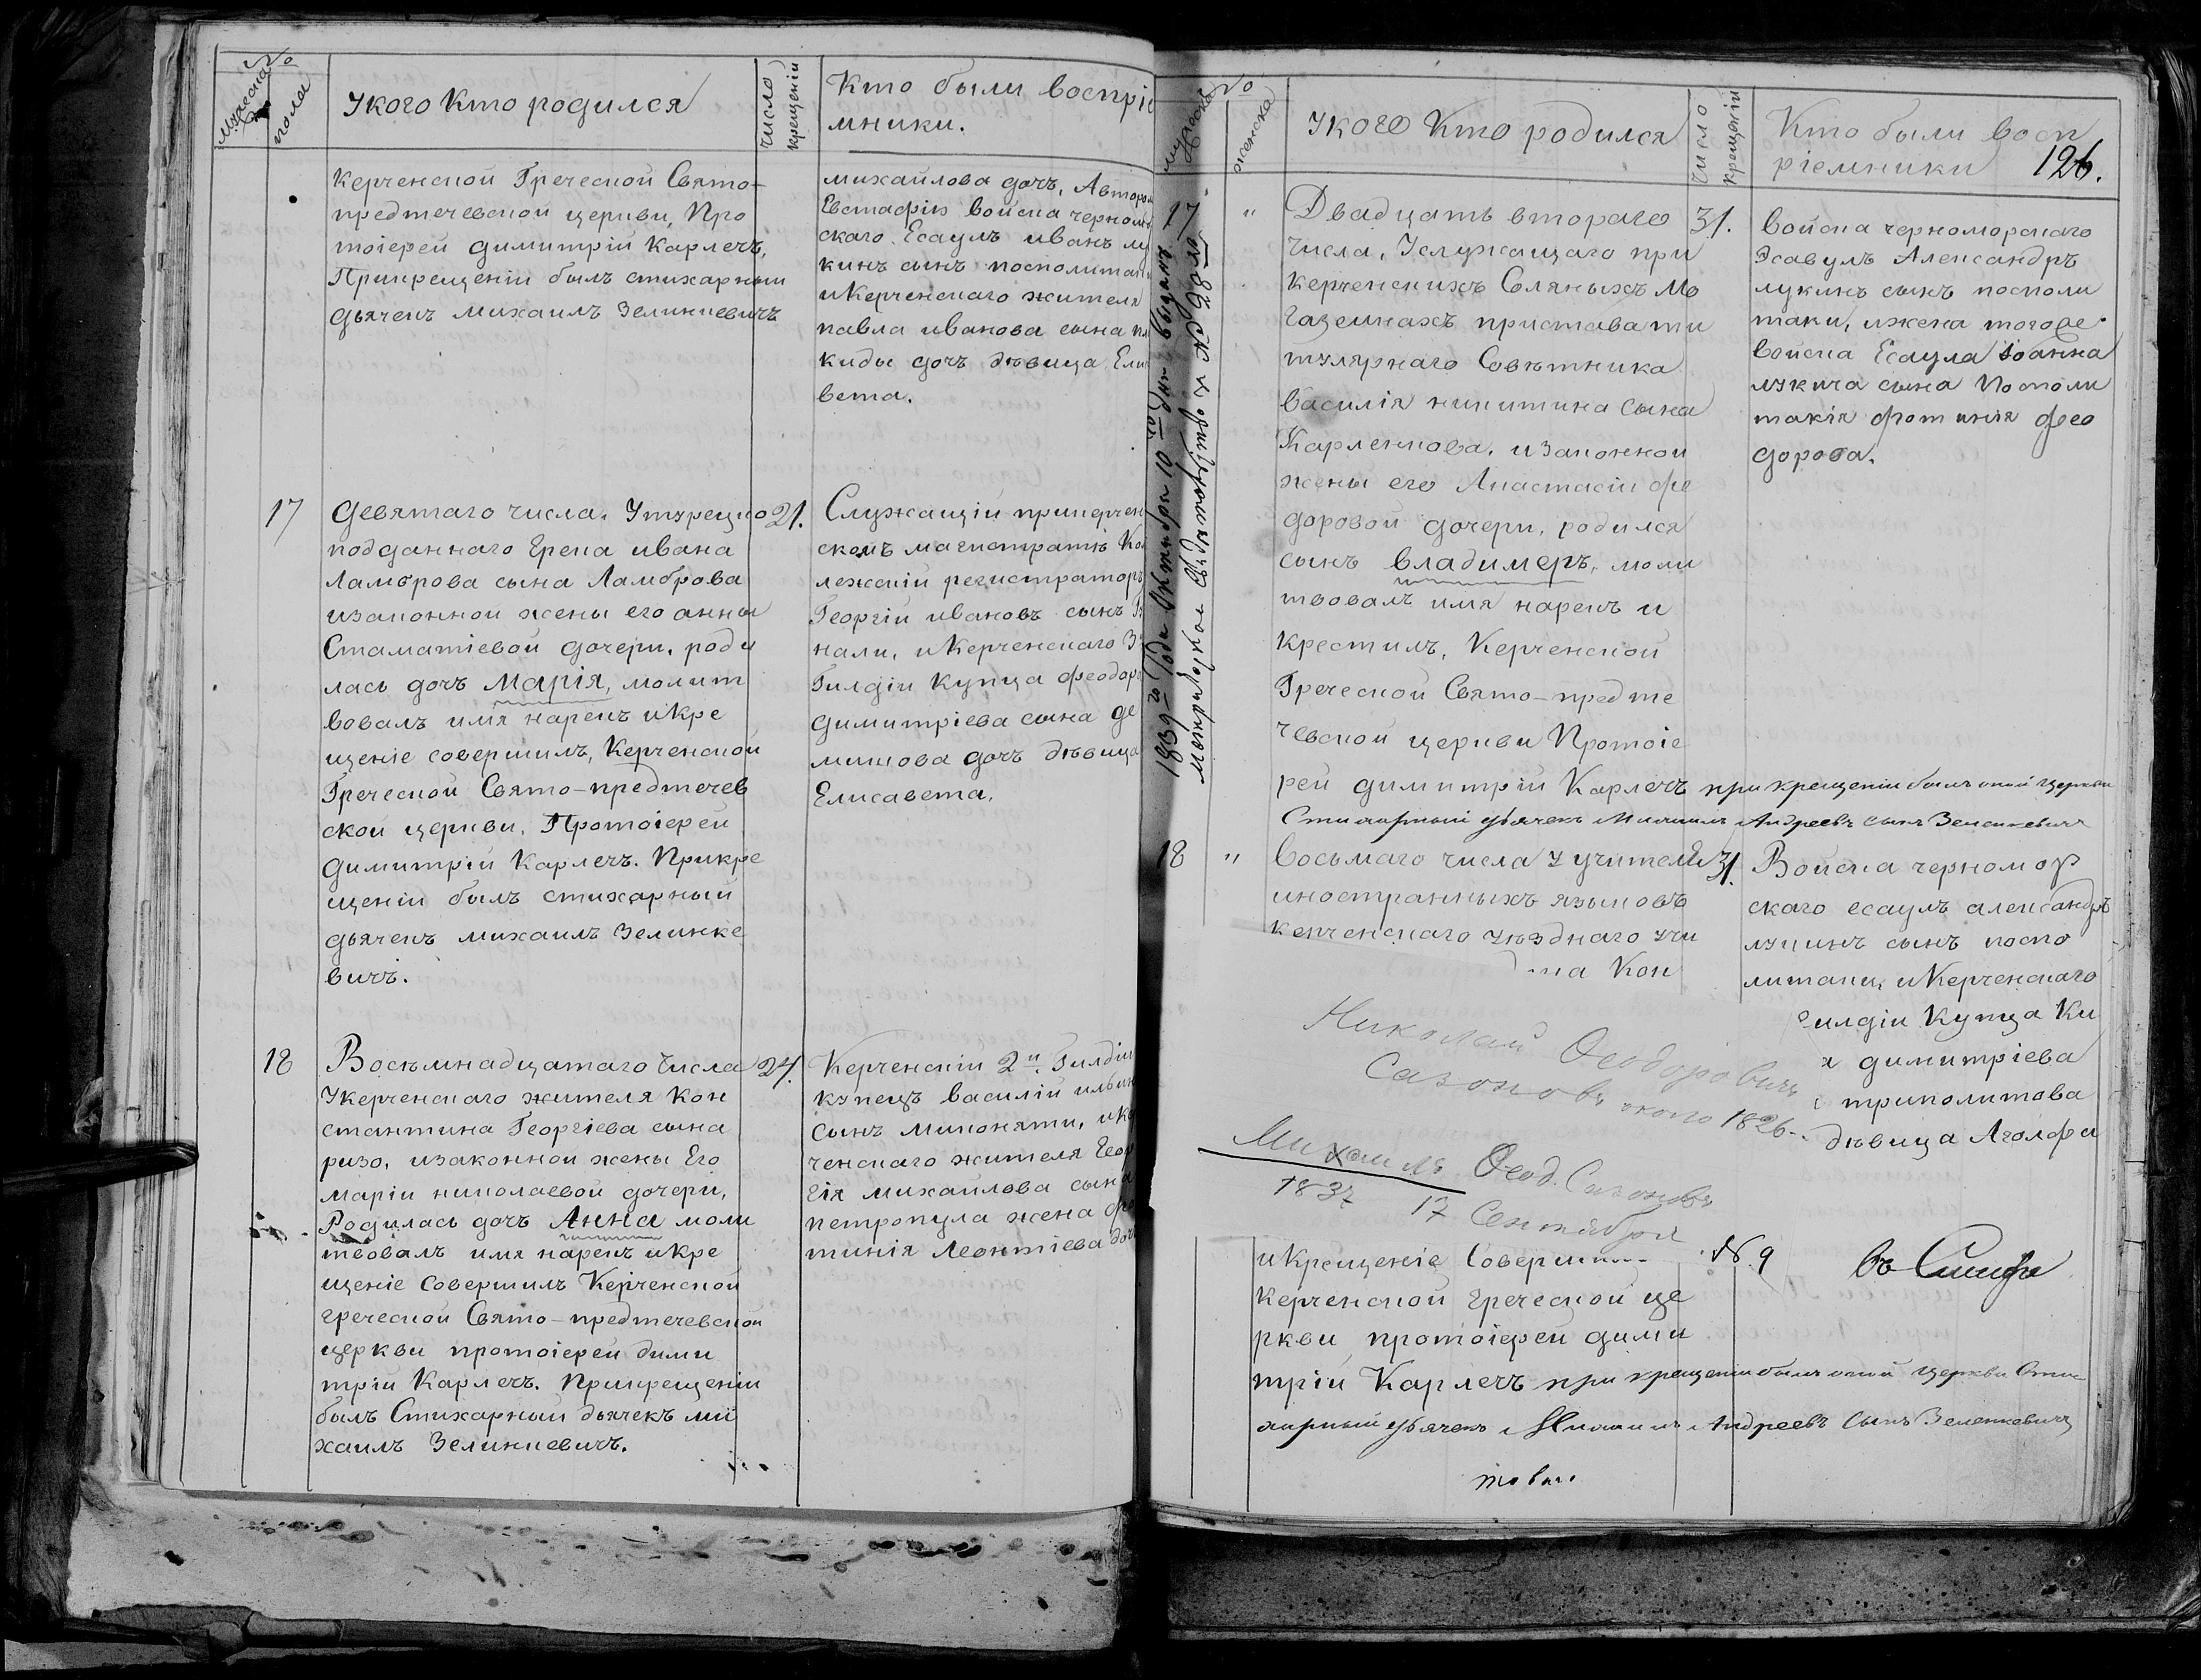 №
мужеска
пола
У кого кто родился
число
крещенiи
Кто были воспрiе
мники.
Керченской Греческой Свято-
предтечевской церкви, Про
тоiерей Димитрiй Карлечъ.
При крещенiи былъ стихарный
дьячекъ Михаилъ Зелинкевичъ
Михайлова дочь,
Евстафiя войска черномор
скаго Есаулъ Иванъ Лу
кинъ сынъ посполитаки
и Керченскаго жителя
павла иванова сына
киды дочь дѣвица Ели
вета.
17
девятаго числа. У турецко
21.
подданнаго Грека ивана
Ламброва сына Ламброва
и законной жены его анны
Стаматiевой дочери. роди
лась дочь Марiя, молит
вовалъ имя нарекъ и кре
щенiе совершилъ, Керченской
Греческой Свято-предтечев
ской церкви, Протоiерей
Димитрiй Карлечъ. При кре
щенiи былъ стихарный
дьячекъ михаилъ Зелинке
вичъ.
Служащiй при керчен
скомъ магистратѣ Кол
лежскiй регистраторъ
Георгiй ивановъ сынъ
нали, и Керченскаго
Гилдiи Купца Феодора
димитрiева сына де
дочь дѣвица
Елисавета.
18
Восѣмнадцатаго числа
24.
У керченскаго жителя Кон
стантина Георгiева сына
ризо, и законной жены Его
марiи николаевой дочери,
Родилась дочь Анна моли
твовалъ имя нарекъ и кре
щенiе совершилъ Керченской
греческой Свято-предтечевской
церкви протоiерей дими
трiй Карлечъ. При крещенiи
былъ Стихарный дьячекъ ми
хаилъ Зелинкевичъ.
Керченскiй 2й Гилдiи
купецъ василiй ильинъ
сынъ
ченскаго жителя Геор
гiя михайлова сына
петропула жена фо
тинiя Леонтiева дочь
1839го Года Октября 10го дня выданъ
метрическое свидѣтельство за №
№
мужеска
женска
У кого кто родился
число
крещенiи
Кто были восп
рiемники
126.
17
"
Двадцать втораго
31.
числа, У служащаго при
керченскихъ Соляныхъ Мо
газейнахъ пристава ти
тулярнаго Совѣтника
василiя никитина сына
Карленкова. и законной
жены его Анастасiи фе
доровой дочери, родился
сынъ владимеръ, моли
твовалъ имя нарекъ и
крестилъ, Керченской
Греческой Свято-предте
чевской церкви Протоiе
рей димитрiй Карлечъ при крещенiи былъ оной церкви
Стихарный дьячекъ Михаилъ Андреевъ сынъ Зеленкевичъ
войска черноморскаго
Эсавулъ Александръ
лукинъ сынъ посполи
таки, и жена тогоже
войска Есаула iоанна
лукича сына Посполи
такiя фотинiя фео
дорова.
18
"
восьмаго числа у учителя
31.
иностранныхъ языковъ
керченскаго уѣзднаго учи
Кон
Войска черномор
скаго есаулъ александръ
лукинъ сынъ поспо
литаки, и Керченскаго
гилдiи Купца Ки
димитрiева
триполитова
дѣвица Аголфа
Николай Ѳеодоровичъ
Сазоновъ около 1826
Михаилъ Ѳеод. Сазоновъ
1837 17 Сентября
и крещенiе Соверши
Керченской греческой це
ркви протоiерей дими
трiй Карлечъ при крещенiи былъ оной церкви Сти
харный дьячекъ Михаилъ Андреевъ сынъ Зеленкевичъ
№ 9